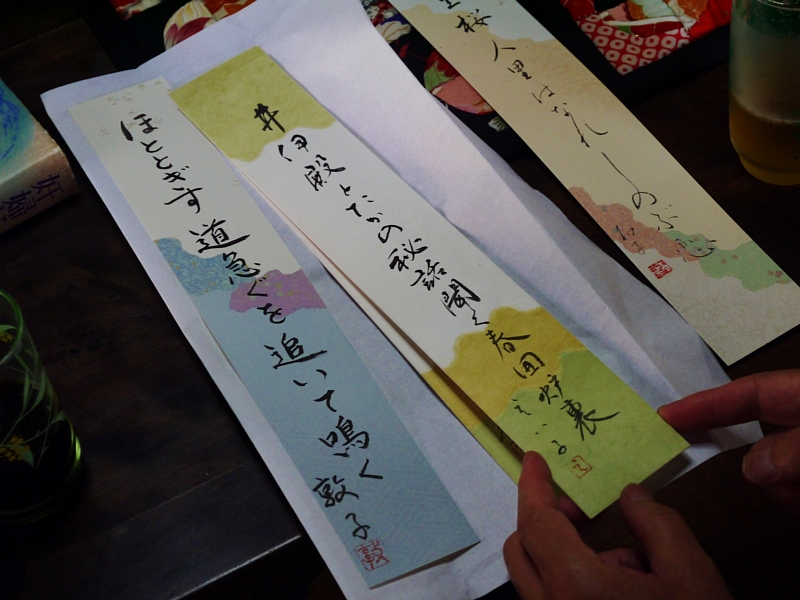 桜人里はなれしのぶ恋
井伊殿とたかの秘話聞く春囲炉裏
ほととぎす道急ぐを追いて鳴く
敦子
敦